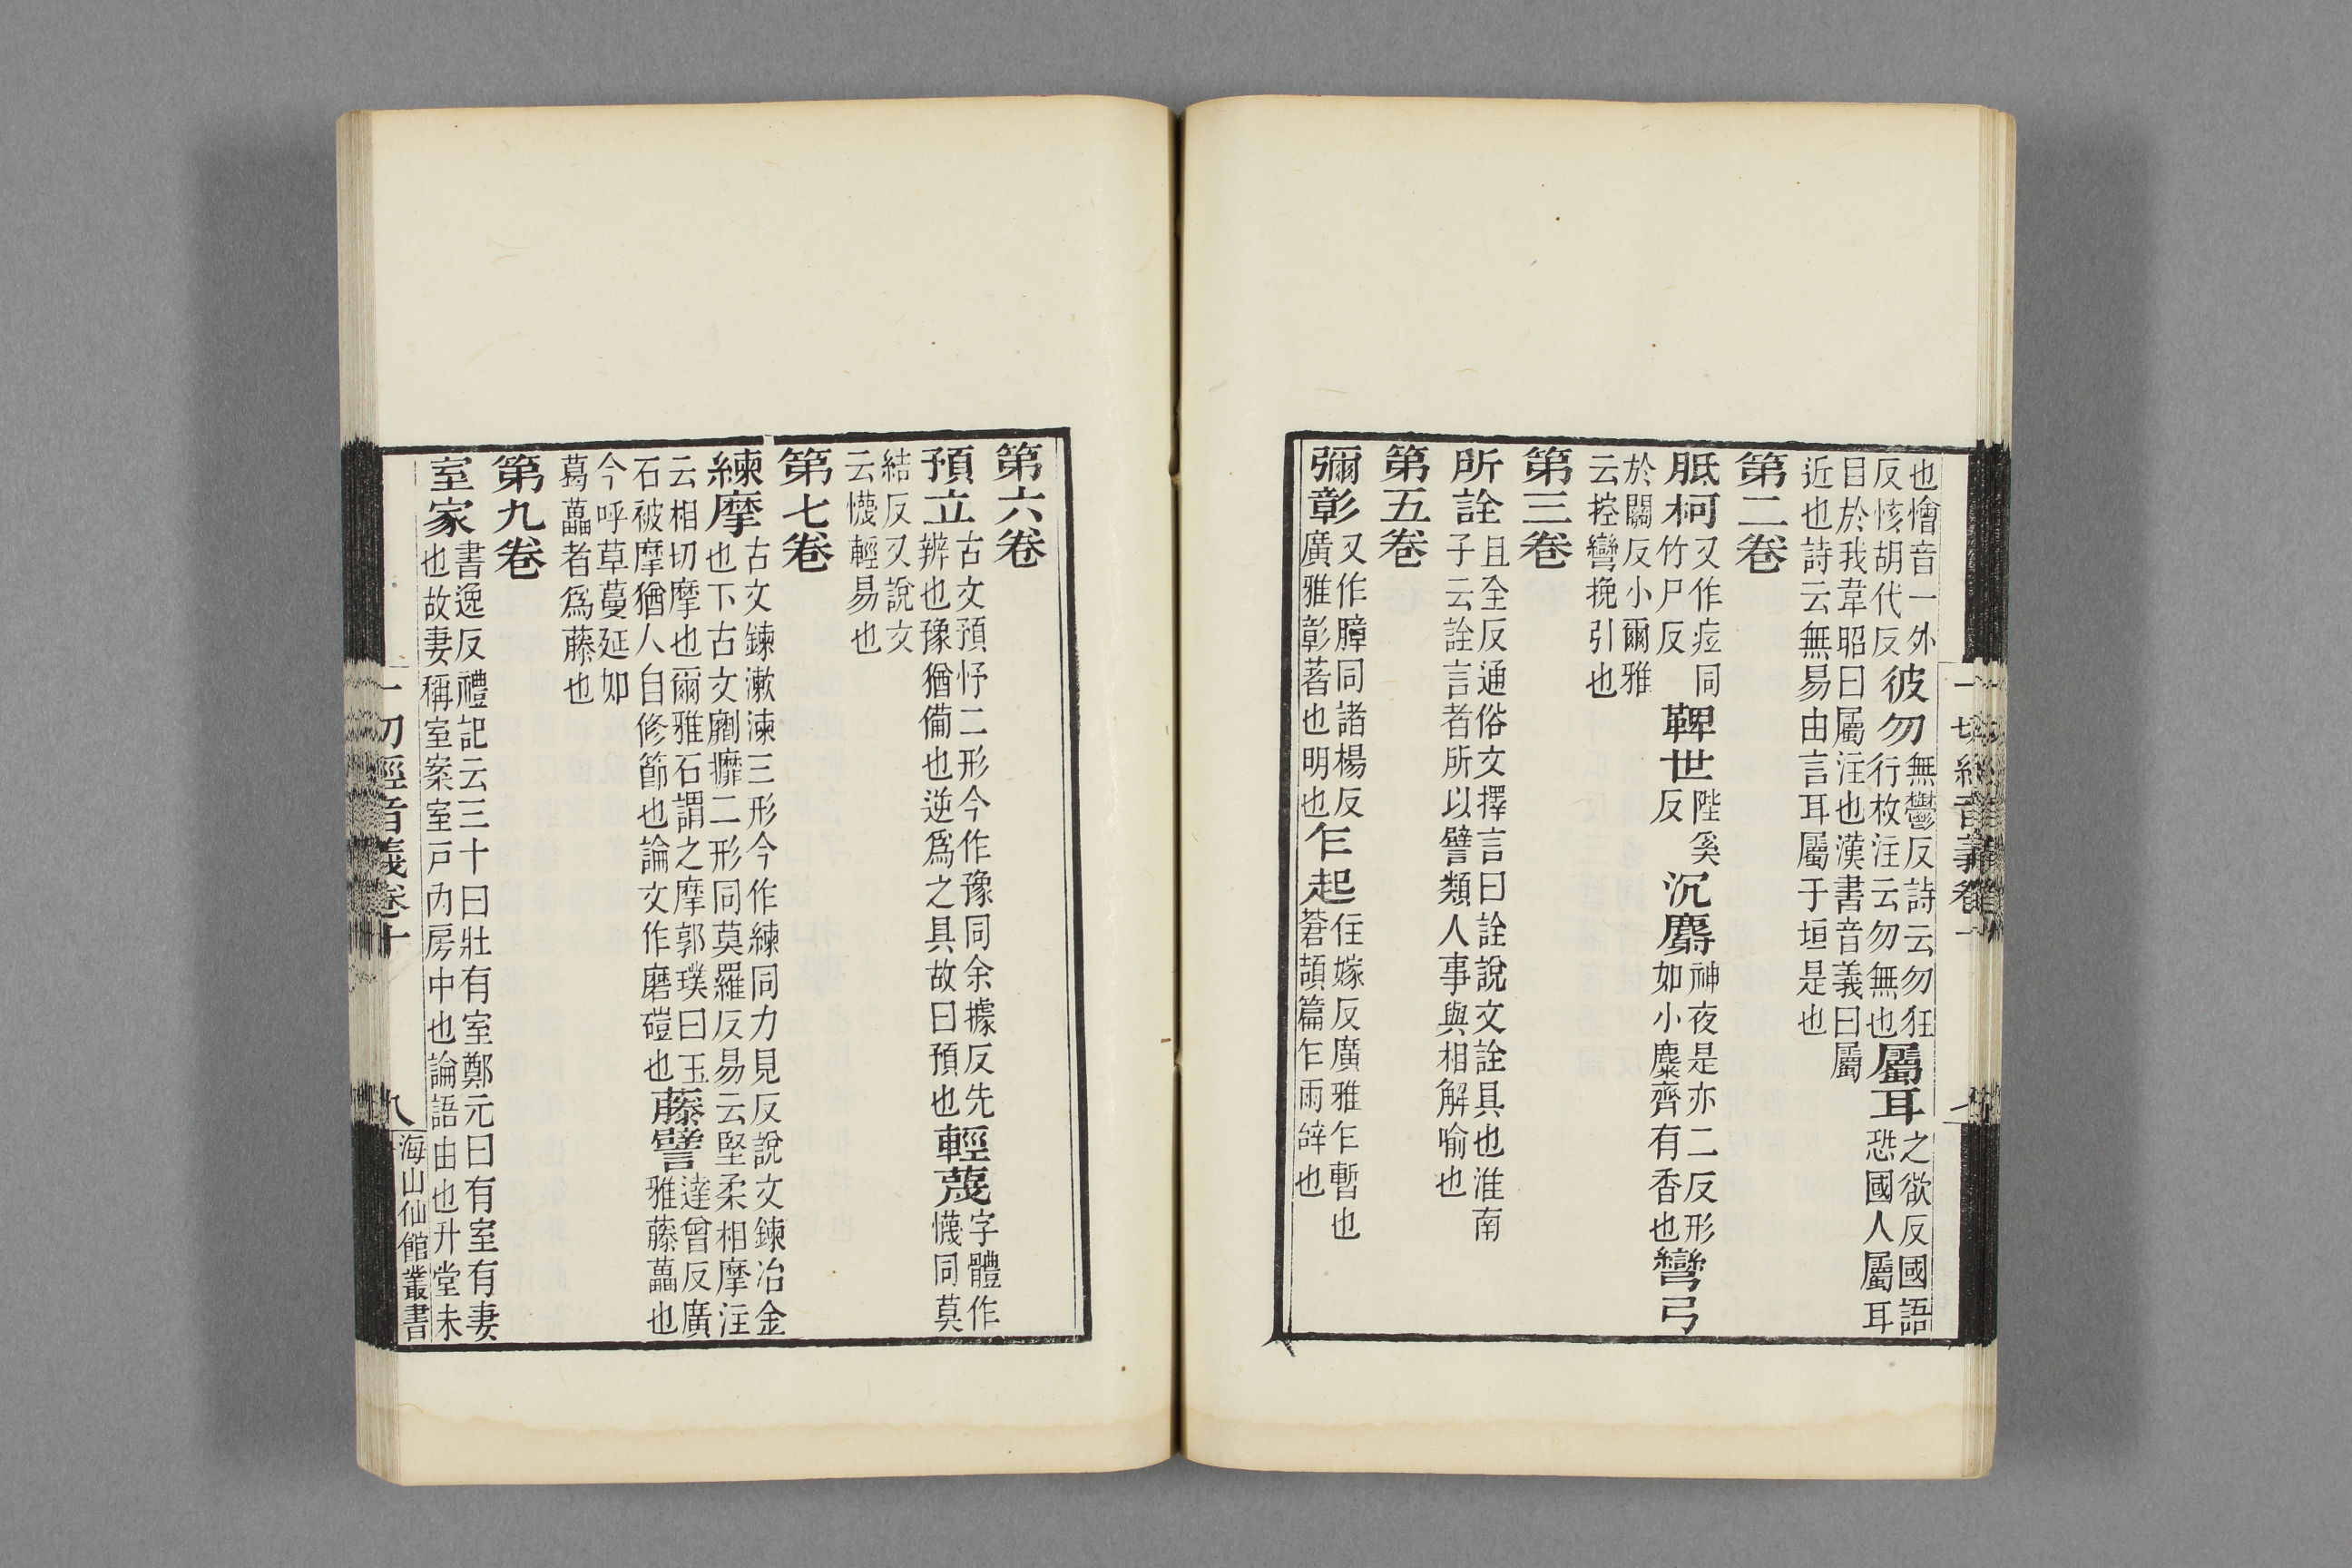 也懀音一外反㤥胡代反彼勿無鬱反詩云勿狂行枚注云勿無也屬耳之欲反國語恐國人屬耳
目於我韋昭曰屬注也漢書音義曰屬近也詩云無易由言耳屬于垣是也
第二卷
胝柯又作㽻同竹尸反鞞世陛奚反沉麝神夜是亦二反形如小麋齊有香也彎弓
於關反小爾雅云控彎挽引也
第三卷
所詮且全反通俗文擇言曰詮說文詮具也淮南子云詮言者所以譬類人事與相解喻也
第五卷
彌彰又作暲同諸楊反廣雅彰著也明也乍起住嫁反廣雅乍暫也蒼頡篇乍兩辝也
第六卷
預立古文預忬二形今作豫同余據反先辨也豫猶備也逆爲之具故曰預也輕蔑字體作懱同莫
結反又說文云懱輕易也
第七卷
練摩古文鍊漱湅三形今作練同力見反說文鍊冶金也下古文劘攠二形同莫羅反易云堅柔相摩注
云相切摩也爾雅石謂之摩郭璞曰玉石被摩猶人自修節也論文作磨磑也藤譬達曾反廣雅藤藟也
今呼草蔓延如葛藟者爲藤也
第九卷
室家書逸反禮記云三十曰壯有室鄭元曰有室有妻也故妻稱室案室戸內房中也論語由也升堂未
一切經音義卷十
八
海山仙館叢書